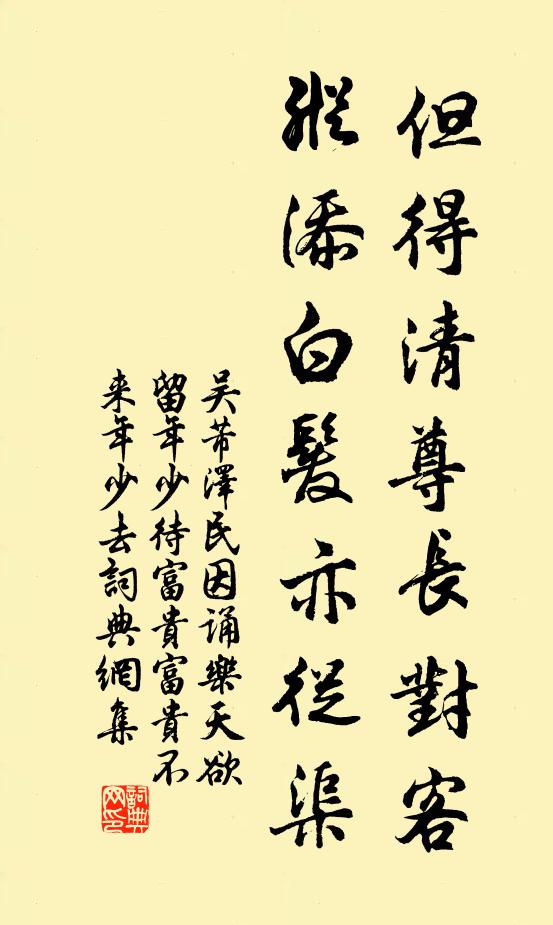 但得清尊長對客
縱添白髮亦從渠
吴芾澤民因誦樂天欲
留年少待富貴富貴不
来年少去詞典網集
詞典网印